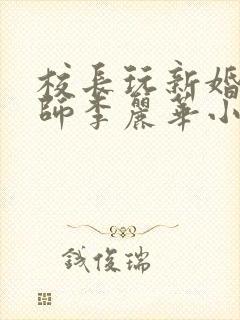 校長玩新婚
師李麗華小
钱俊瑞